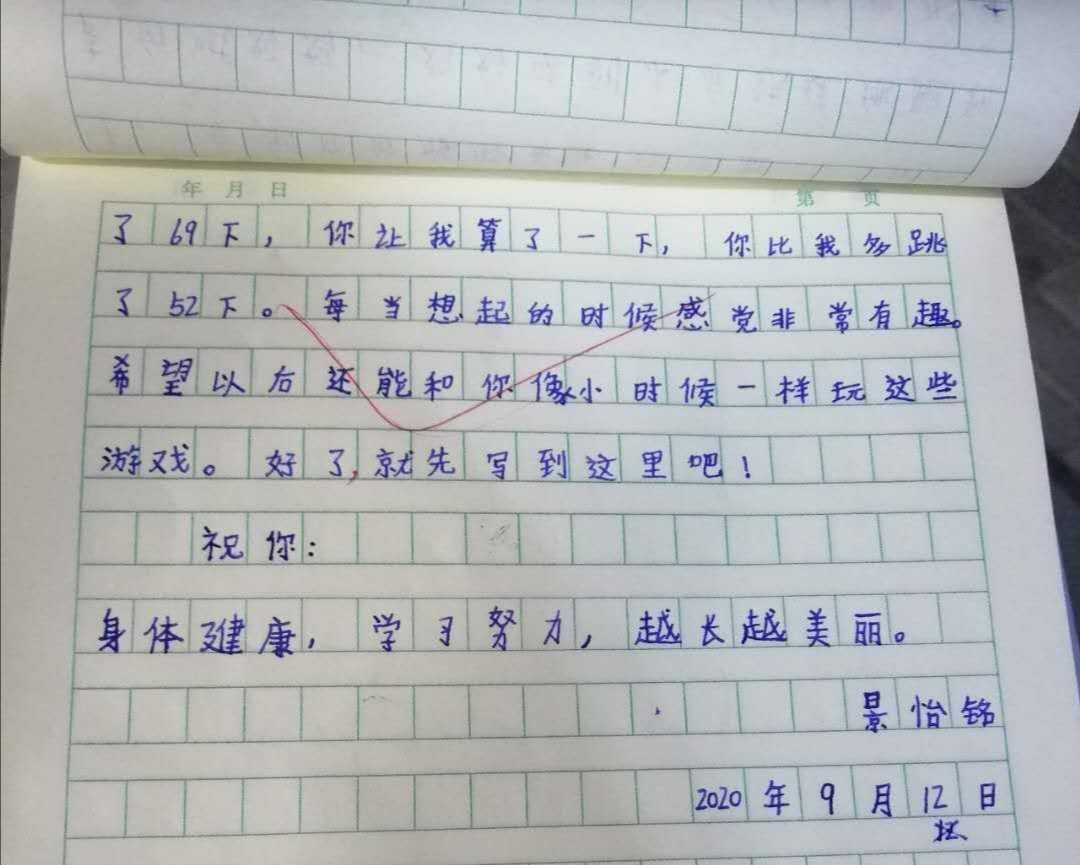 年 月 日 第 页
了69下，你让我算了一下，你比我多跳
了52下。每当想起的时候感觉非常有趣。
希望以后还能和你像小时候一样玩这些
游戏。好了，就先写到这里吧！
祝你：
身体健康，学习努力，越长越美丽。
景怡铭
2020年9月12日